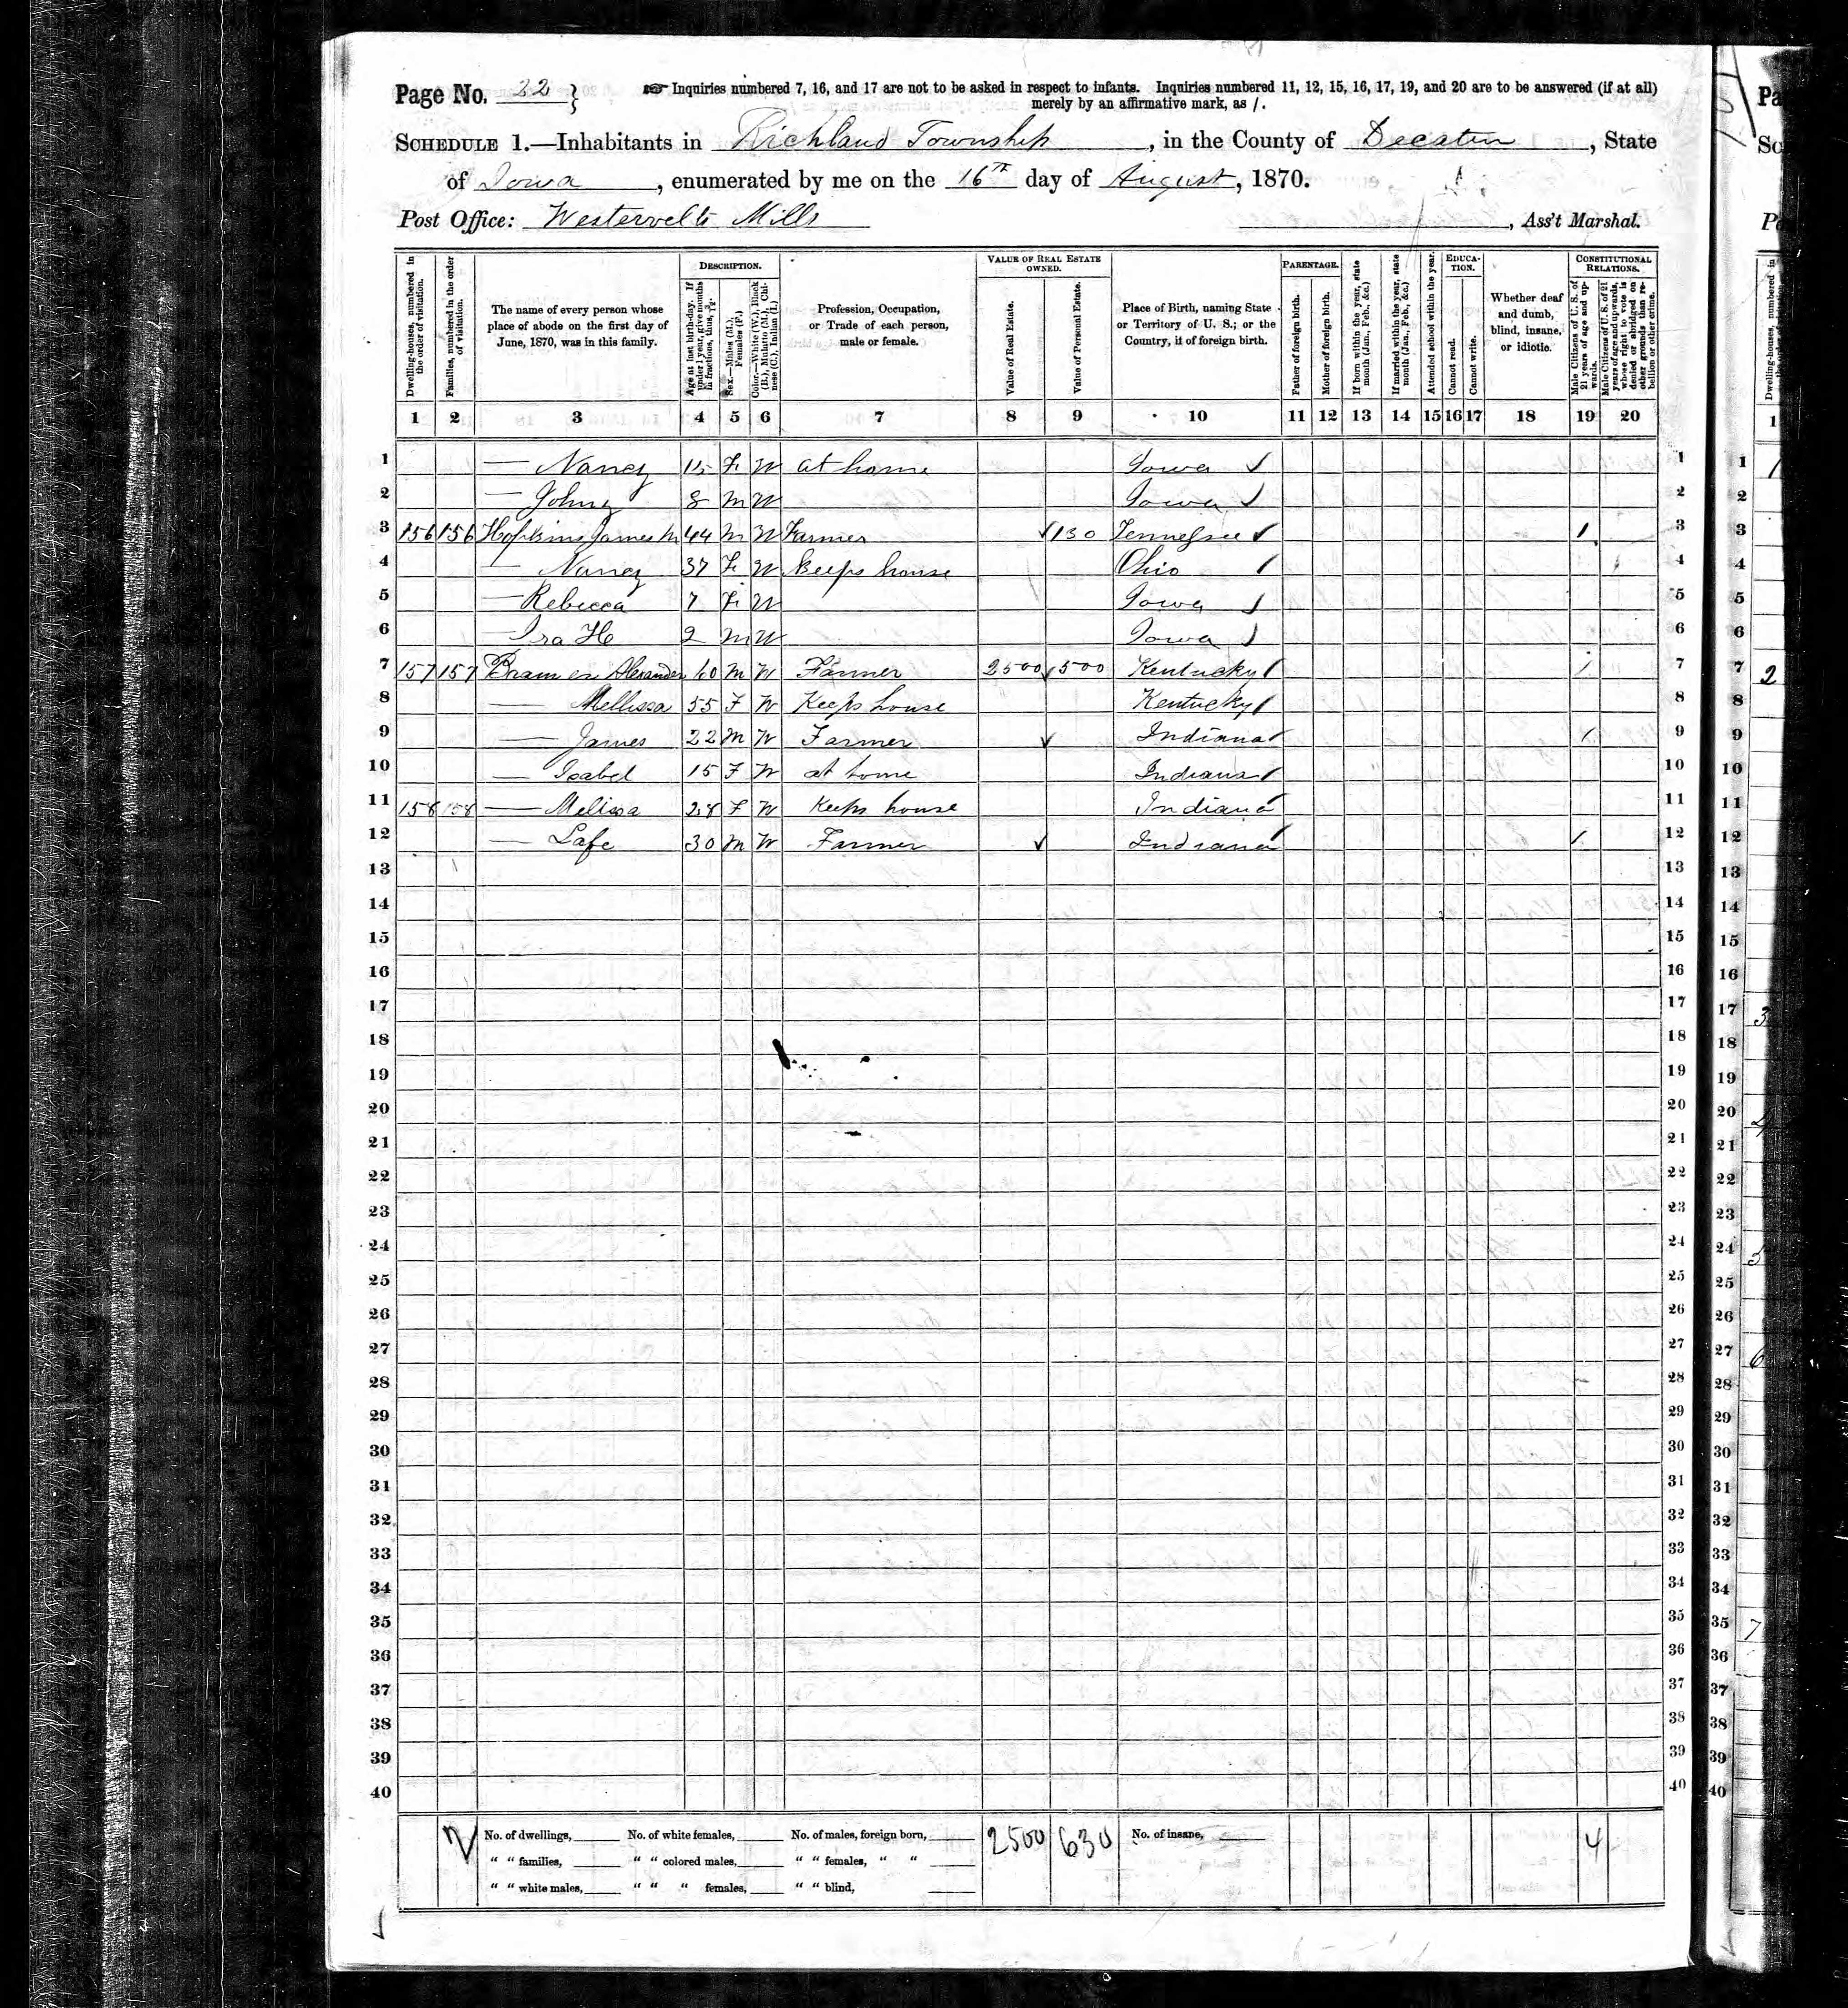 Page No. 22 } Inquiries numbered 7, 16, and 17 are not to be asked in respect to infants. Inquiries numbered 11, 12, 15, 16, 17, 19, and 20 are to be answered (if at all)
merely by an affirmative mark, as /.
SCHEDULE 1.—Inhabitants in Richland Township, in the County of Decatur, State
of Iowa, enumerated by me on the 16th day of August, 1870.
Post Office: Westervelts Mills , Ass't Marshal.
Dwelling-houses, numbered in the order of visitation.
Families, numbered in the order of visitation.
The name of every person whose place of abode on the first day of June, 1870, was in this family.
DESCRIPTION.
Age at last birth-day. If under 1 year, give months in fractions, thus,
Sex.—Males (M.), Females (F.)
Color.—White (W.), Black (B.), Mulatto (M.), Chinese (C.), Indian (I.)
Profession, Occupation, or Trade of each person, male or female.
VALUE OF REAL ESTATE OWNED.
Value of Real Estate.
Value of Personal Estate.
Place of Birth, naming State or Territory of U. S.; or the Country, if of foreign birth.
PARENTAGE.
Father of foreign birth.
Mother of foreign birth.
If born within the year, state month (Jan., Feb., &c.)
If married within the year, state month (Jan., Feb., &c.)
Attended school within the year.
EDUCATION.
Cannot read.
Cannot write.
Whether deaf and dumb, blind, insane, or idiotic.
CONSTITUTIONAL RELATIONS.
Male Citizens of U. S. of 21 years of age and upwards.
Male Citizens of U. S. of 21 years of age and upwards, whose right to vote is denied or abridged on other grounds than rebellion or other crime.
1 2 3 4 5 6 7 8 9 10 11 12 13 14 15 16 17 18 19 20
1 — Nancy 15 F W at home Iowa ✓ 1
2 — Johny 8 M W Iowa ✓ 2
3 156 156 Hopkins James M 44 M W Farmer ✓ 130 Tennessee ✓ 1 3
4 — Nancy 37 F W Keeps house Ohio / 4
5 — Rebecca 7 F W Iowa ✓ 5
6 — Ira H 2 M W Iowa ✓ 6
7 157 157 Alexander 60 M W Farmer 2500 ✓ 500 Kentucky / 1 7
8 — Mellissa 55 F W Keeps house Kentucky / 8
9 — James 22 M W Farmer ✓ Indiana / 1 9
10 — Isabel 15 F W at home Indiana / 10
11 158 158 — Melissa 28 F W Keeps house Indiana 11
12 — Lafe 30 M W Farmer ✓ Indiana 1 12
13 13
14 14
15 15
16 16
17 17
18 18
19 19
20 20
21 21
22 22
23 23
24 24
25 25
26 26
27 27
28 28
29 29
30 30
31 31
32 32
33 33
34 34
35 35
36 36
37 37
38 38
39 39
40 40
No. of dwellings, No. of white females, No. of males, foreign born, 2500 630 No. of insane, 4
" " families, " " colored males, " " females, " "
" " white males, " " " females, " " blind,